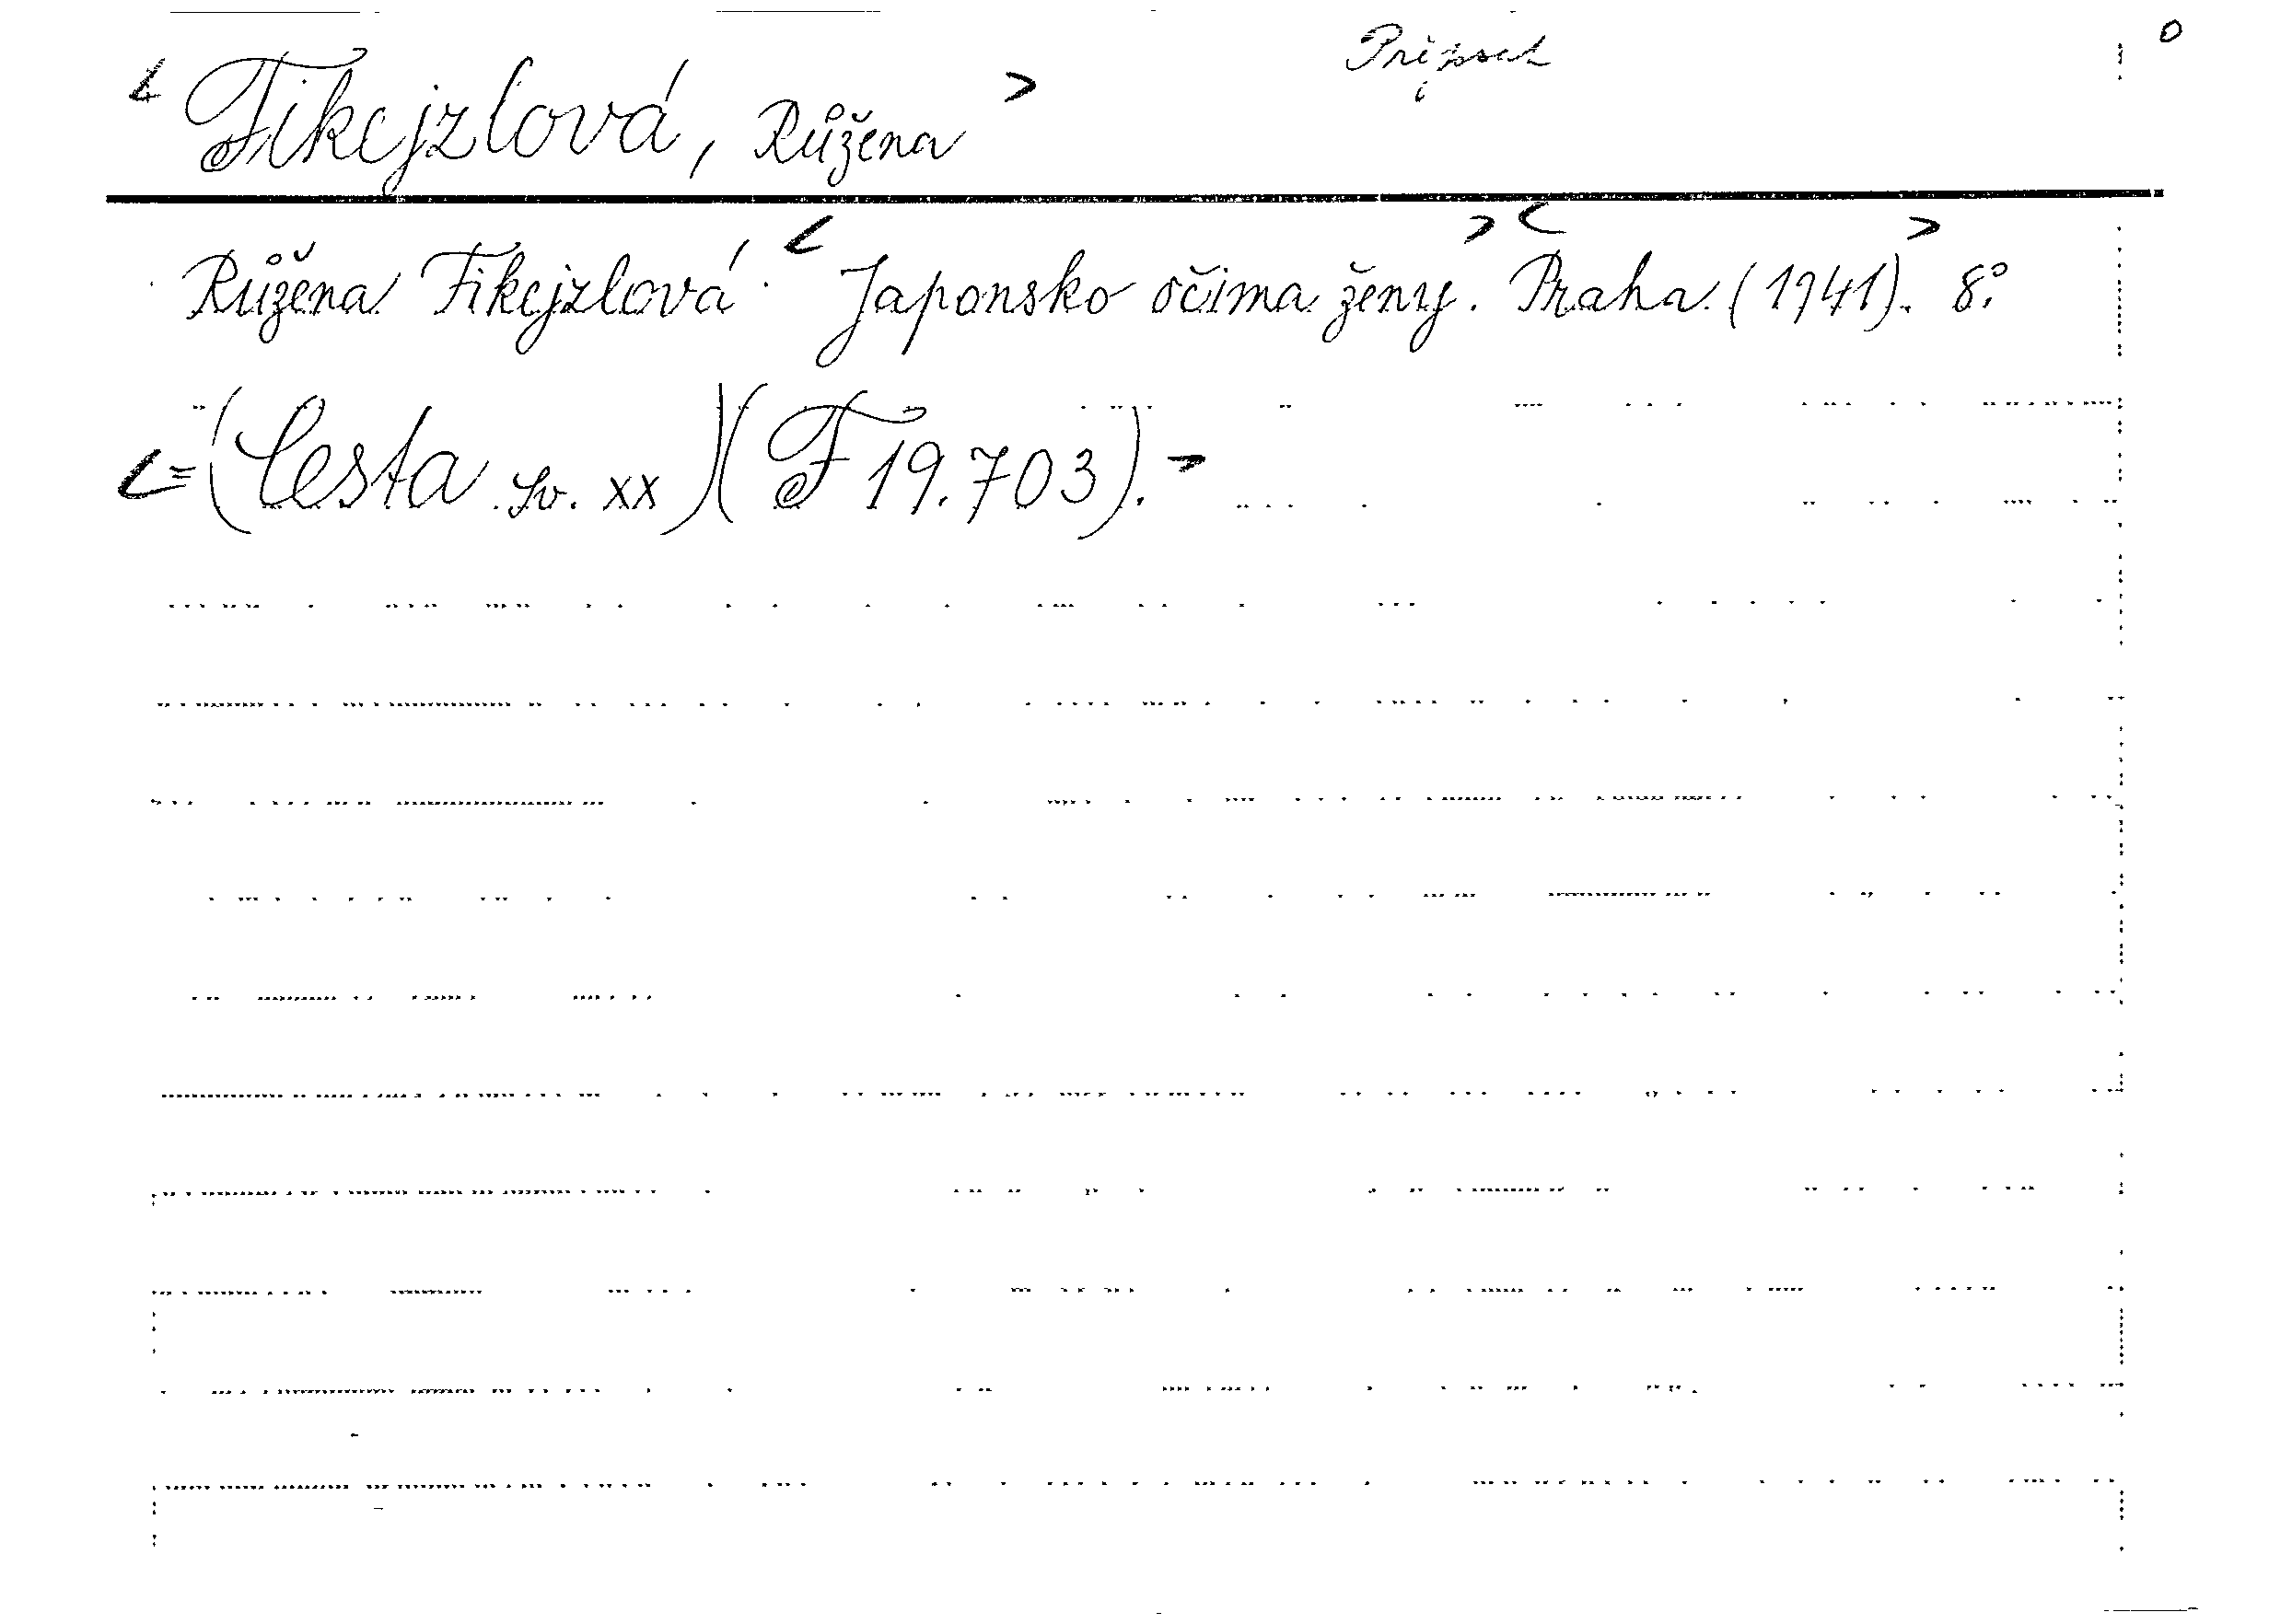 < Fikejzlová, Růžena >
Růžena Fikejzlová. < Japonsko očima ženy. > < Praha (1941). > 8°.
<= (Cesta sv. XX) (F 19.703). >